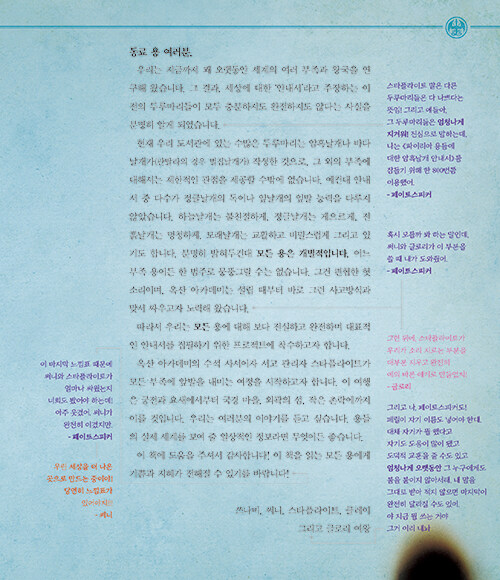 동료 용 여러분,
우리는 지금까지 꽤 오랫동안 세계의 여러 부족과 왕국을 연
구해 왔습니다. 그 결과, 세상에 대한 '안내서'라고 주장하는 이
전의 두루마리들이 모두 충분하지도 완전하지도 않다는 사실을
분명히 알게 되었습니다.
현재 우리 도서관에 있는 수많은 두루마리는 암흑날개나 바다
날개가(한발리의 경우 벌집날개가) 작성한 것으로, 그 외의 부족에
대해서는 제한적인 관점을 제공할 수밖에 없습니다. 예컨대 안내
서 중 다수가 정글날개의 독이나 잎날개의 잎발 능력을 다루지
않았습니다. 하늘날개는 불친절하게, 정글날개는 게으르게, 진
흙날개는 멍청하게, 모래날개는 교활하고 비밀스럽게 그리고 있
기도 합니다. 분명히 밝혀두건대 모든 용은 개별적입니다. 어느
부족 용이든 한 범주로 뭉뚱그릴 수는 없습니다. 그건 편협한 헛
소리이며, 옥산 아카데미는 설립 때부터 바로 그런 사고방식과
맞서 싸우고자 노력해 왔습니다.
따라서 우리는 모든 용에 대해 보다 진실하고 완전하며 대표적
인 안내서를 집필하기 위한 프로젝트에 착수하고자 합니다.
옥산 아카데미의 수석 사서이자 서고 관리자 스타플라이트가
모든 부족에 앞발을 내미는 여정을 시작하고자 합니다. 이 여행
은 궁전과 요새에서부터 국경 마을, 외곽의 섬, 작은 촌락에까지
이를 것입니다. 우리는 여러분의 이야기를 듣고 싶습니다. 용들
의 실제 세계를 보여 줄 인상적인 정보라면 무엇이든 좋습니다.
이 책에 도움을 주셔서 감사합니다! 이 책을 읽는 모든 용에게
기쁨과 지혜가 전해질 수 있기를 바랍니다!
쓰나미, 써니, 스타플라이트, 클레이
그리고 글로리 여왕
스타플라이트 말은 다른
두루마리들은 다 나쁘다는
뜻임! 그리고 얘들아,
그 두루마리들은 엄청나게
지겨워! 진심으로 말하는데,
나는 《파이리아 용들에
대한 암흑날개 안내서》를
잠들기 위해 한 800번쯤
이용했어.
- 페이트스피커
혹시 모를까 봐 하는 말인데,
써니와 글로리가 이 부분을
쓸 때 내가 도와줬어.
- 페이트스피커
그런 뒤에, 스타플라이트가
우리가 소리 지르는 부분을
- 글로리
그리고 나, 페이트스피커도!
왜냐면
자기도 도움이 많이 됐고
도덕적 교훈을 줄 수도 있고
엄청나게 오랫동안 그 누구에게도
불을 붙이지 않아서래. 내 말을
그대로 받아 적지 않으면 마지막이
완전히 달라질 수도 있어.
야 지금 뭘 쓰는 거야
그거 이리 내놔
이 마지막 느낌표 때문에
써니와 스타플라이트가
얼마나 싸웠는지
너희도 봤어야 하는데!
아주 웃겼어. 써니가
완전히 이겼지만.
- 페이트스피커
우린 세상을 더 나은
곳으로 만드는 중이야!
당연히 느낌표가
- 써니